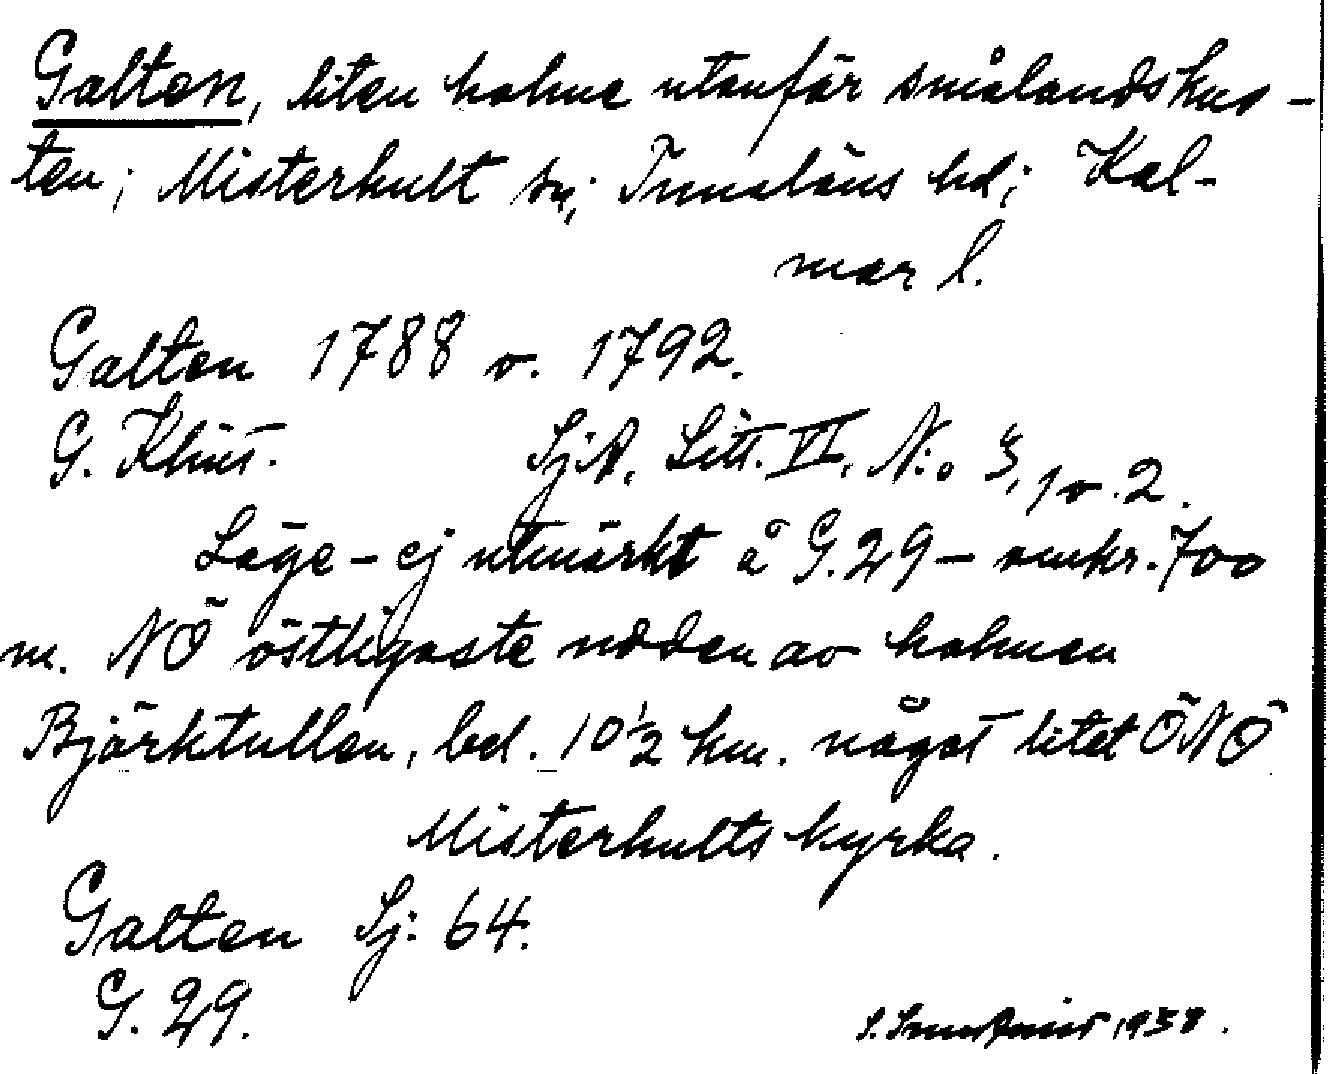 Galten, liten holme utanför smålandskus-
ten; Misterhult sn; Tunaläns hd; Kal-
mar l.
Galten 1788 o. 1792.
G. Klint. SjA. Litt. VI. N:o 3, 1 o. 2.
Läge - ej utmärkt å G. 29 - omkr. 700
m. NÖ östligaste udden av holmen
Björktullen, bel. 10 1/2 km. något litet ÖNÖ
Misterhults kyrka.
Galten Sj: 64.
G. 29.
S. 1938.